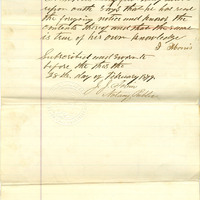 upon oath, says that he has read
the forgoing notice and knows the
contents thereof and that the same
is true of his own knowledge
J. Morris
Subscribed and sworn to
before me this the
28th day of February 1879.
Notary Public